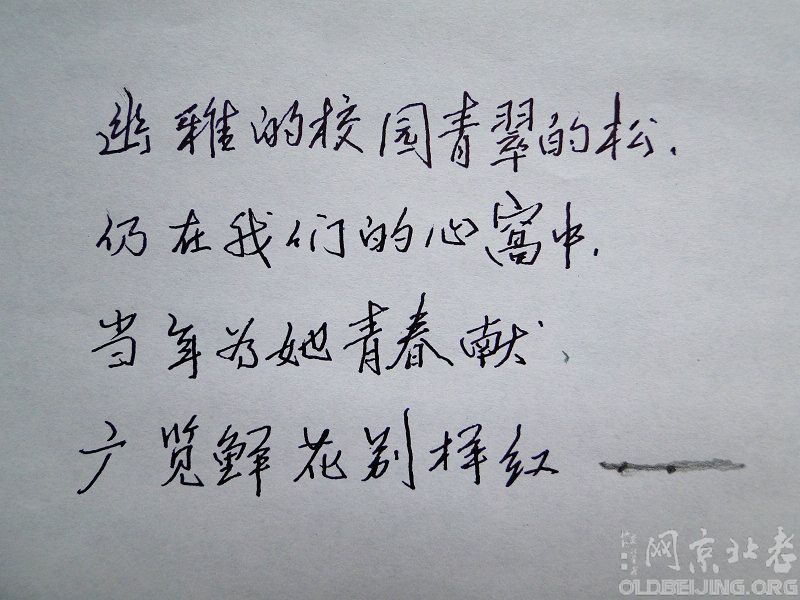 幽雅的校园青翠的松.
仍在我们的心窝中.
当年为她青春献、
广览鲜花别样红——
老北京网
OLDBEIJING.ORG